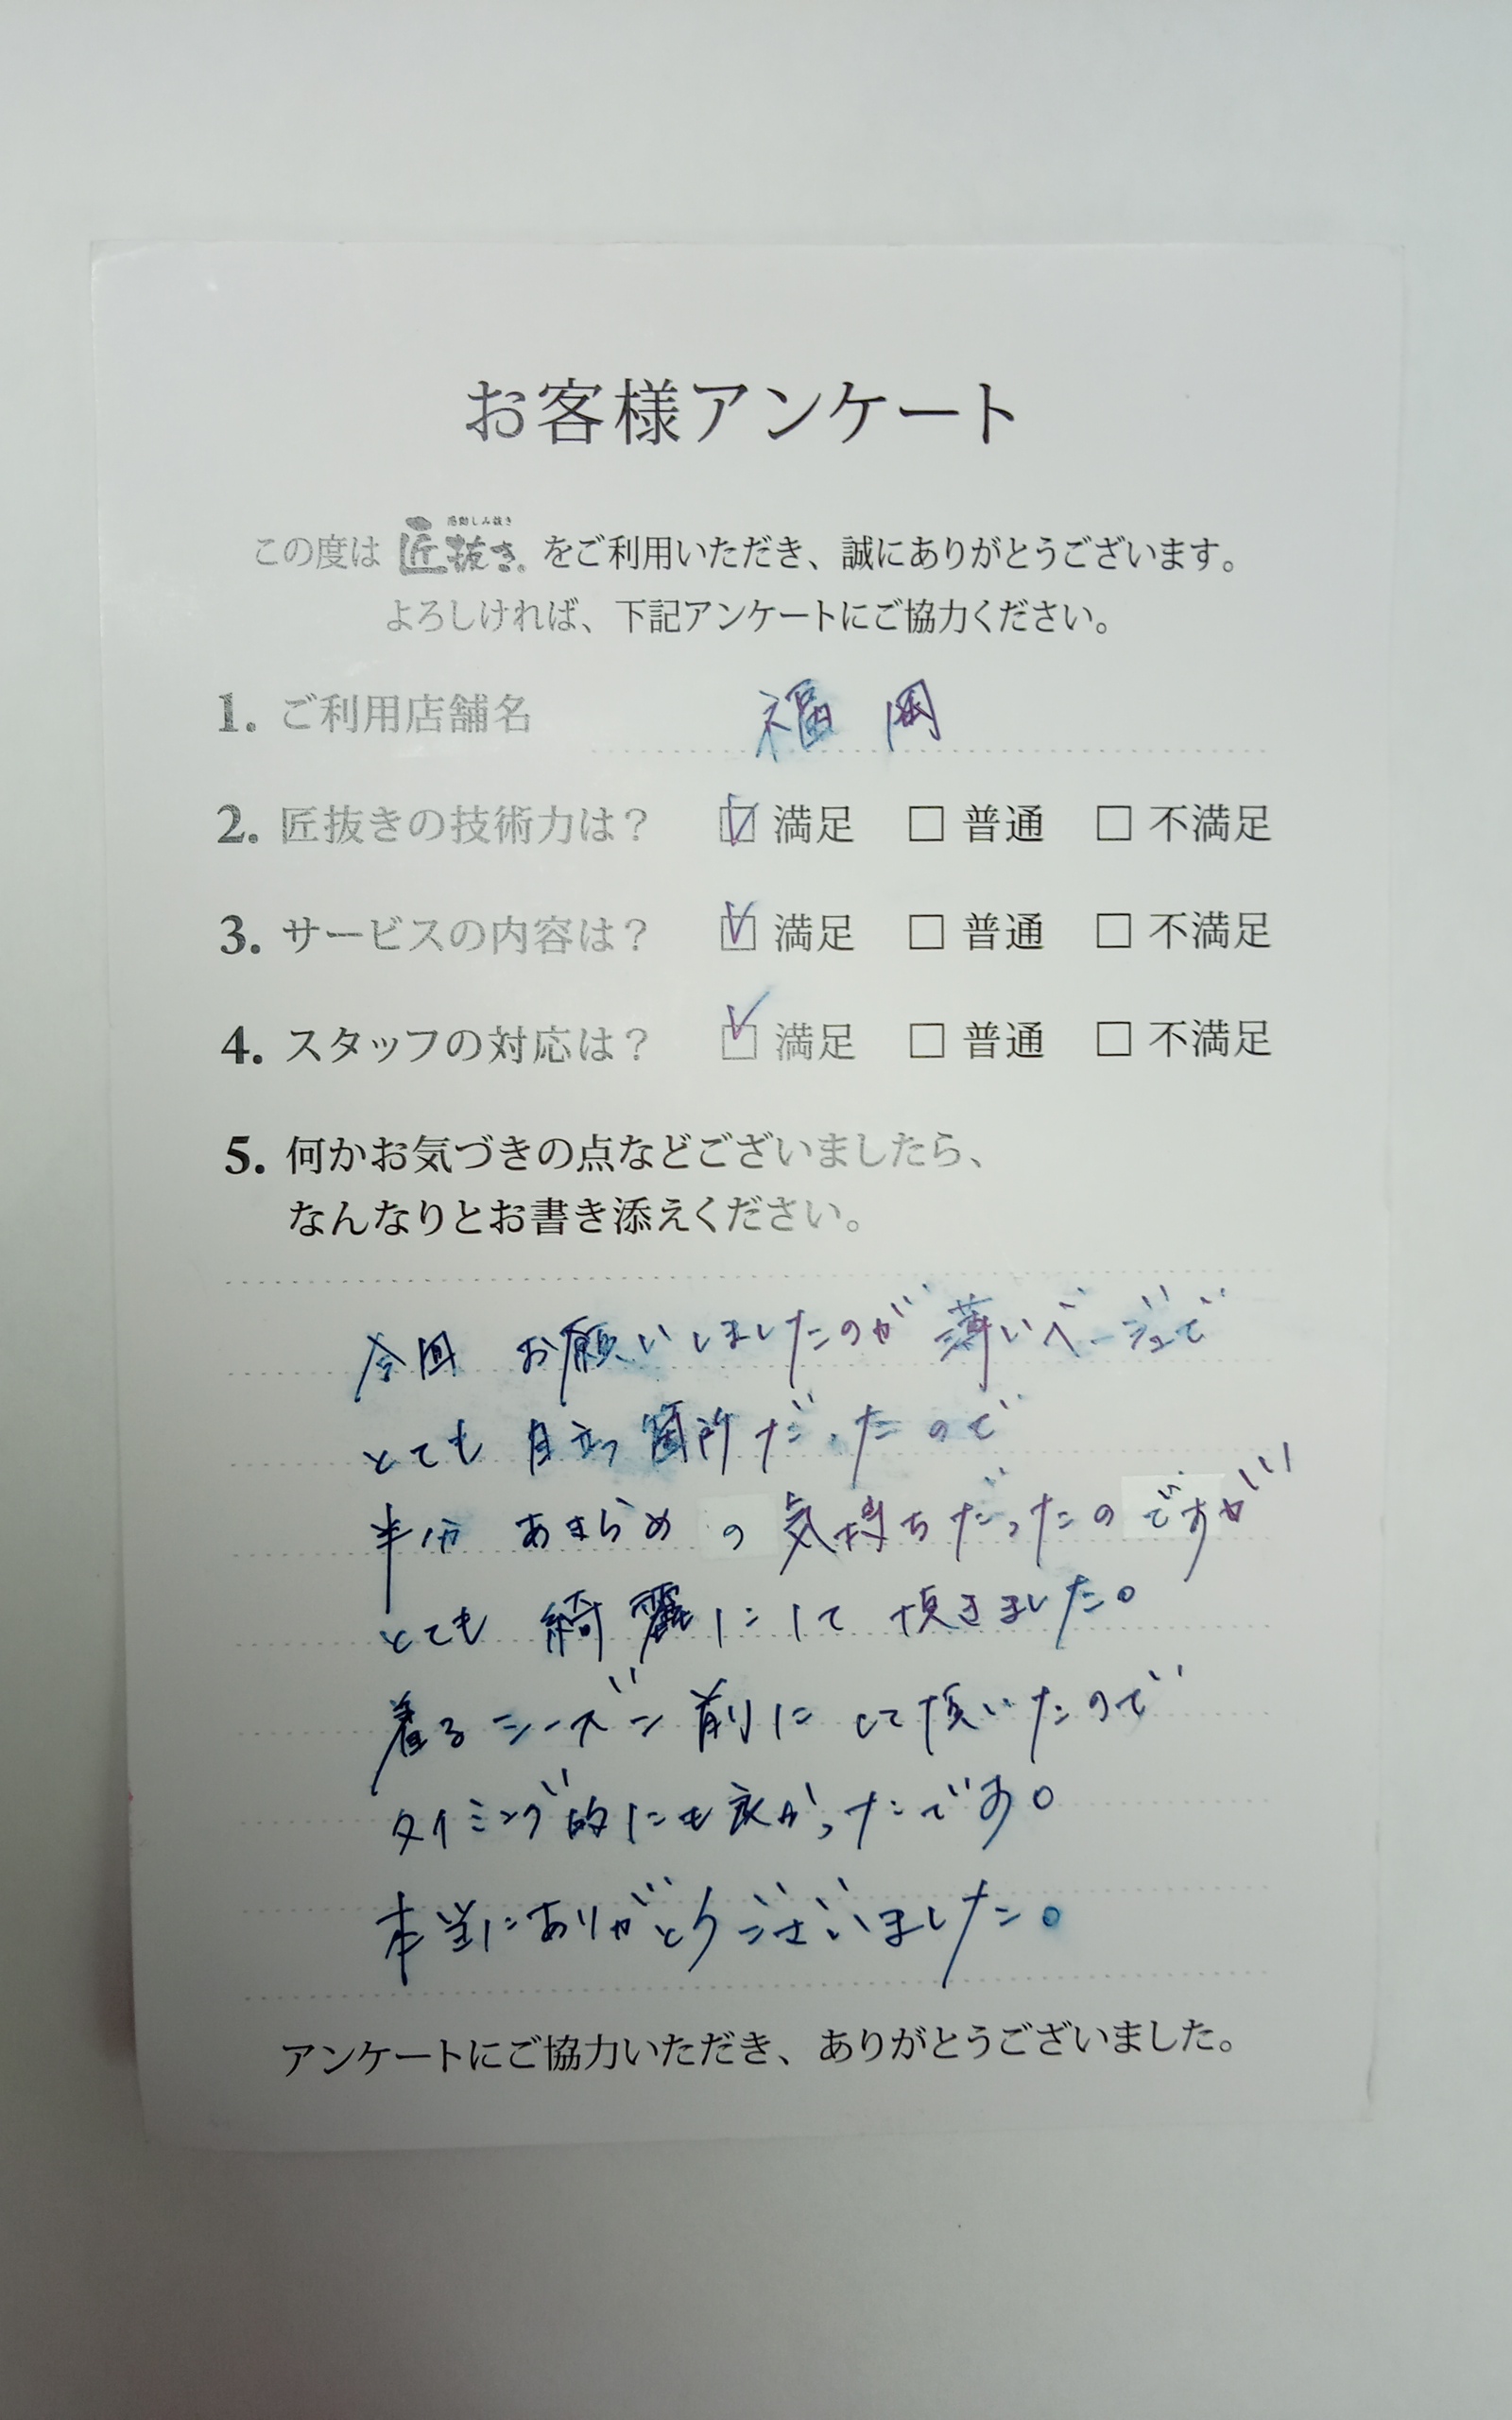 お客様アンケート
この度は 感動しみ抜き 匠抜き をご利用いただき、誠にありがとうございます。
よろしければ、下記アンケートにご協力ください。
1. ご利用店舗名 福岡
2. 匠抜きの技術力は？ ☑ 満足 □ 普通 □ 不満足
3. サービスの内容は？ ☑ 満足 □ 普通 □ 不満足
4. スタッフの対応は？ ☑ 満足 □ 普通 □ 不満足
5. 何かお気づきの点などございましたら、
なんなりとお書き添えください。
今回 お願いしましたのが 薄いベージュで
とても 目立つ 箇所だったので
半分 あきらめの 気持ちだったのですが
とても 綺麗にして 頂きました。
着るシーズン前に して頂いたので
タイミング的にも良かったです。
本当にありがとうございました。
アンケートにご協力いただき、ありがとうございました。